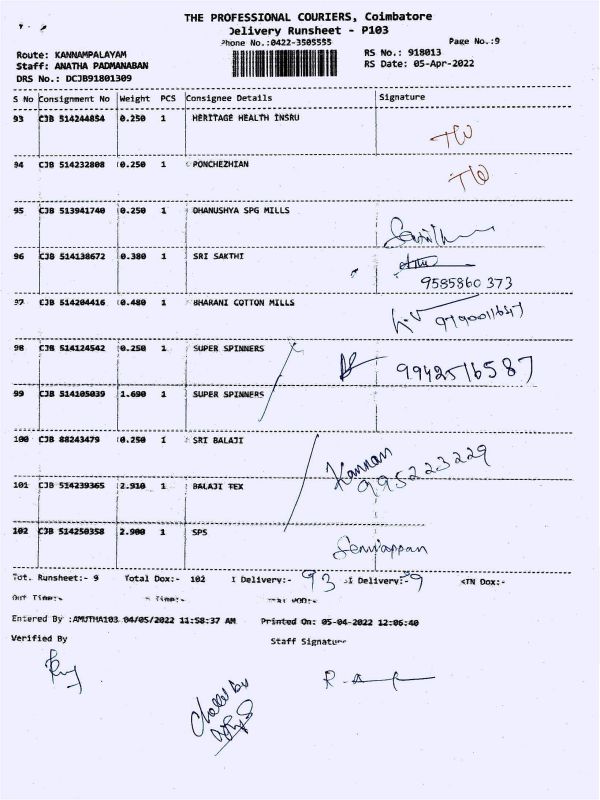 THE PROFESSIONAL COURIERS, Coimbatore
Delivery Runsheet - P103
Phone No.:0422-3505555
Page No.:9
Route: KANNAMPALAYAM
RS No.: 918013
Staff: ANATHA PADMANABAN
RS Date: 05-Apr-2022
DRS No.: DCJB91801309
S No Consignment No Weight PCS Consignee Details Signature
93 CJB 514244854 0.250 1 HERITAGE HEALTH INSRU
94 CJB 514232808 0.250 1 PONCHEZHIAN
95 CJB 513941740 0.250 1 DHANUSHYA SPG MILLS
96 CJB 514138672 0.380 1 SRI SAKTHI
9585860 373
97 CJB 514204416 0.480 1 BHARANI COTTON MILLS
98 CJB 514124542 0.250 1 SUPER SPINNERS
9942516587
99 CJB 514105039 1.690 1 SUPER SPINNERS
100 CJB 88243479 0.250 1 SRI BALAJI
Kannan
995223229
101 CJB 514239365 2.910 1 BALAJI TEX
102 CJB 514250358 2.900 1 SPS
Tot. Runsheet:- 9 Total Dox:- 102 I Delivery:- 93 I Delivery:- 9 TN Dox:-
Out Time:- Time:-
Entered By :AMUTHA103 04/05/2022 11:58:37 AM Printed On: 05-04-2022 12:06:40
Verified By Staff Signature